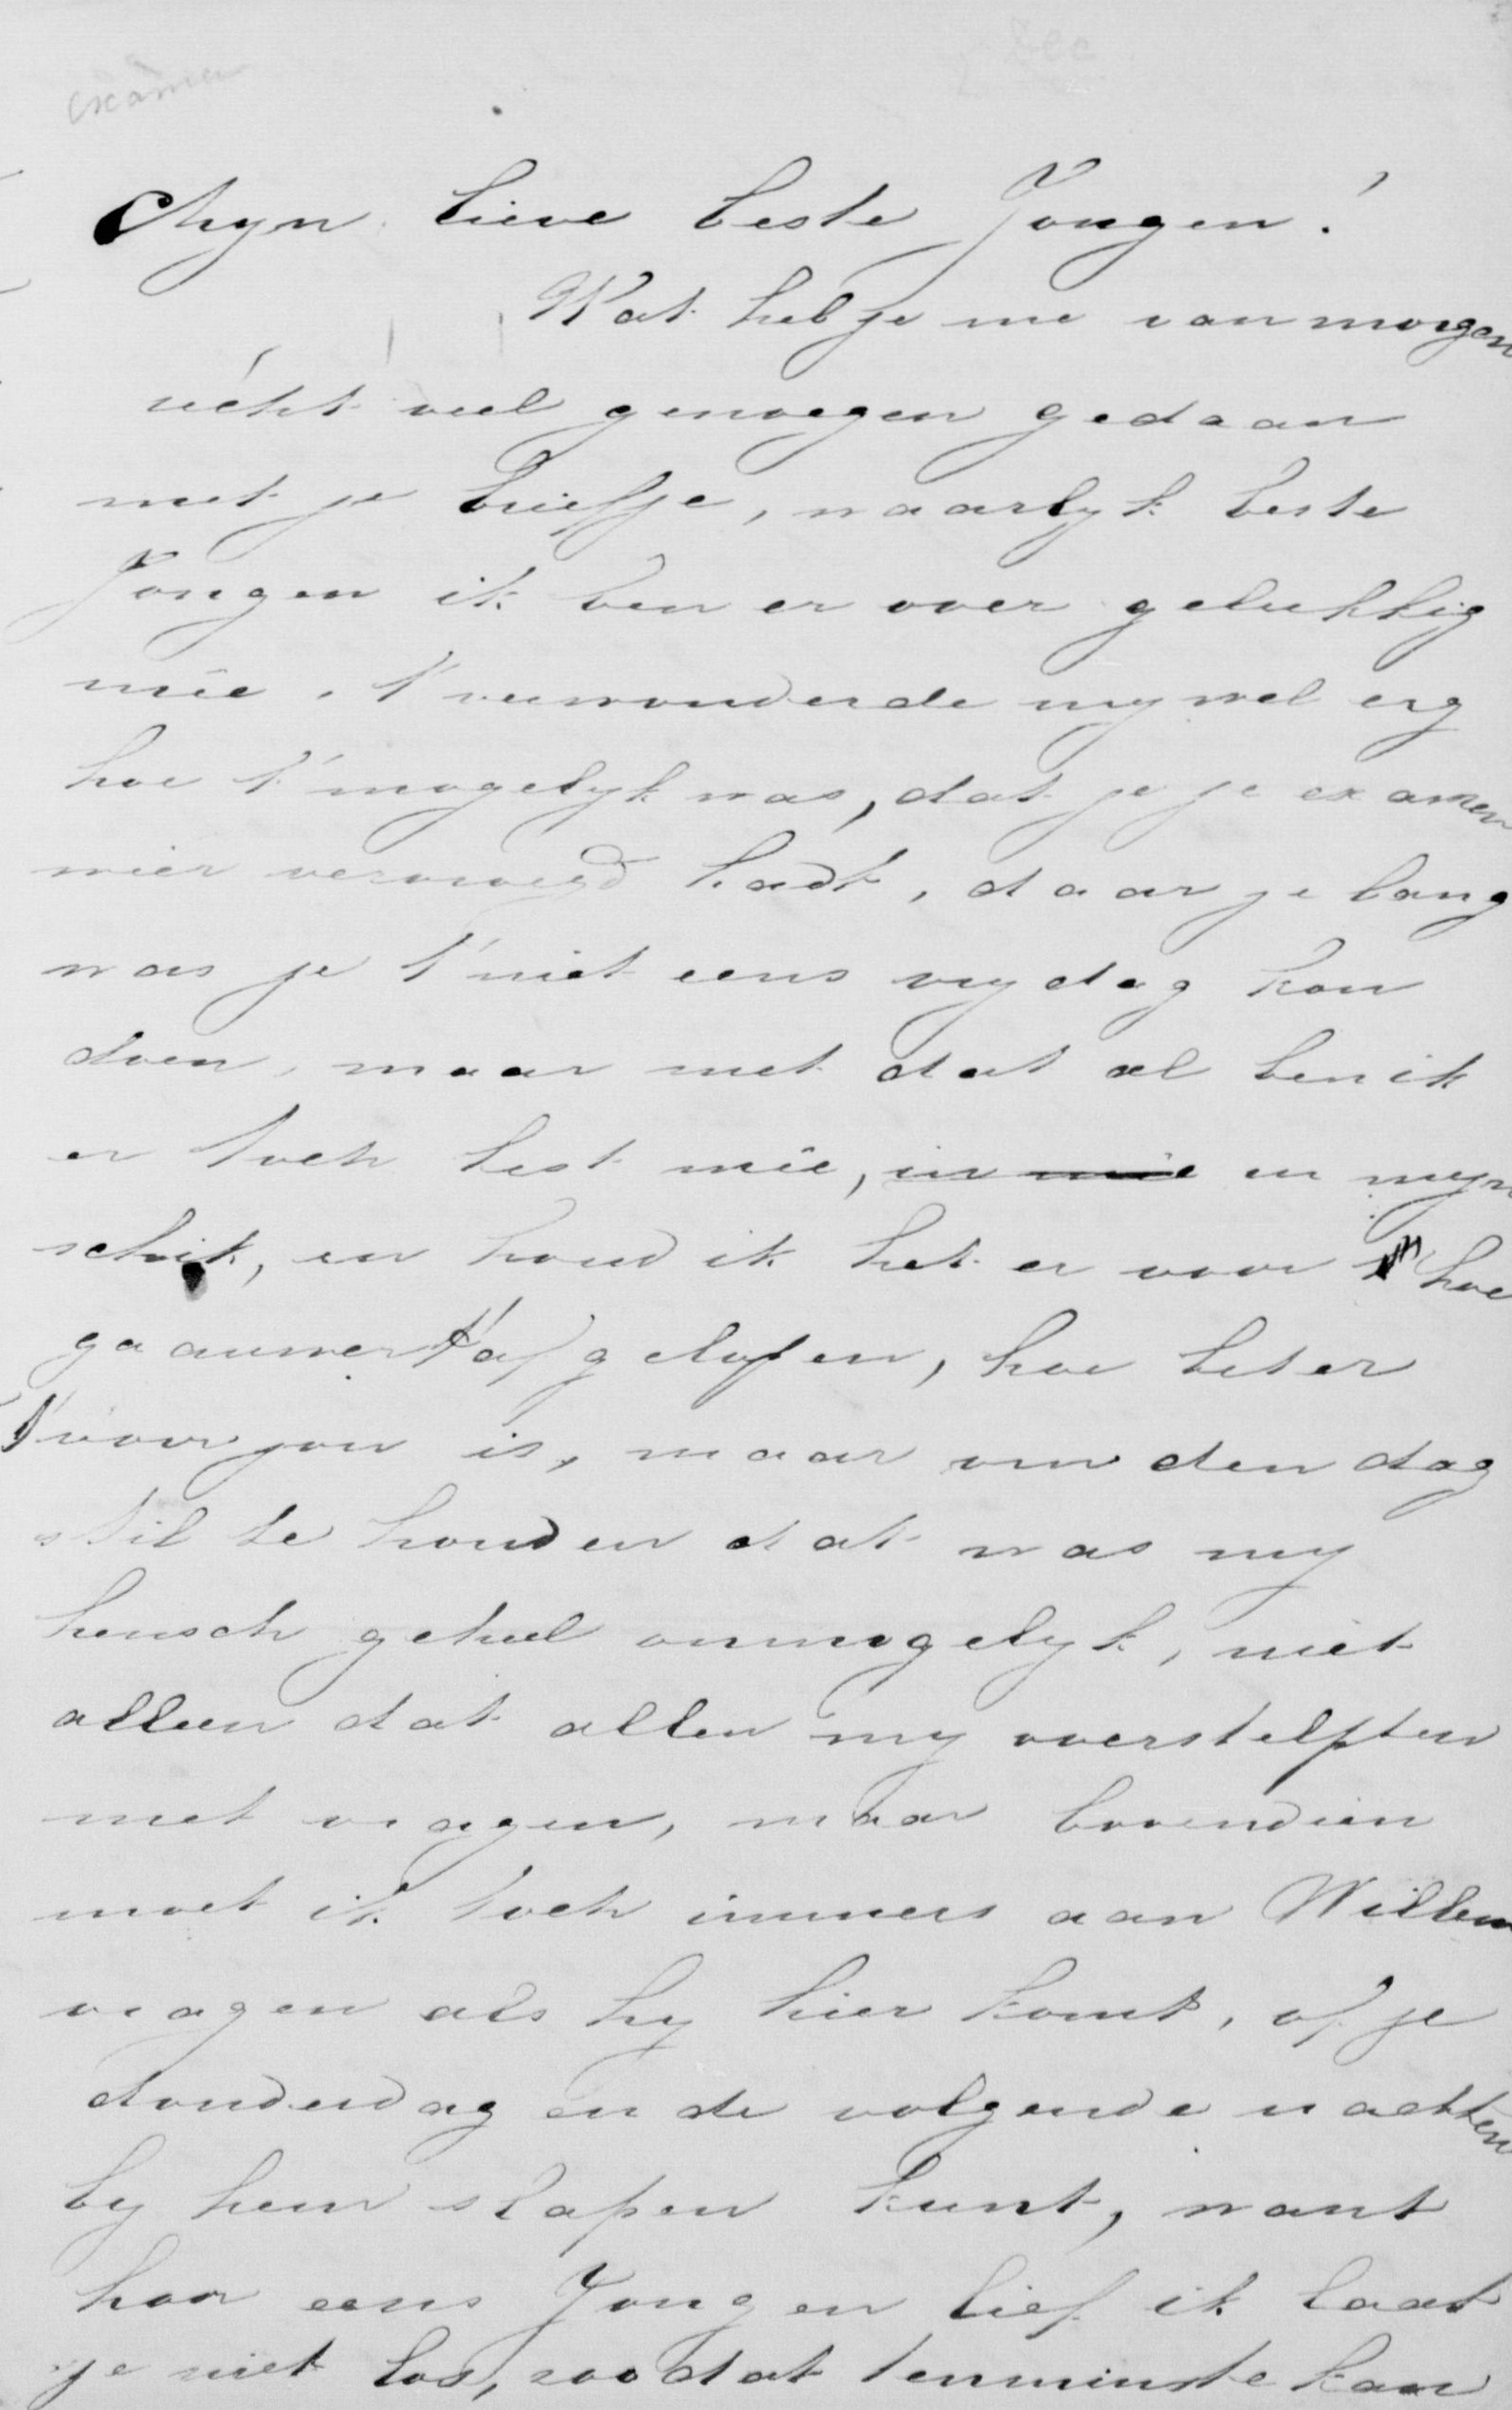 examen
Mijn lieve beste Jongen!
Wat heb je me van morgen
récht veel genoegen gedaan
met je briefje, waarlyk beste
Jongen ik ben er over gelukkig
mêe. t' verwonderde my wel erg
hoe t' mogelyk was, dat je je examen
weer vervroegd hadt, daar je bang
was je t' niet eens vrydag kon
doen, maar met dat al ben ik
er toch best mêe, in mêe in myn
schik, en houd ik het er voor hoe
gaauwer t' afgelopen, hoe beter
t' voor jou is, maar om den dag
stil te houden dat was my
heusch geheel onmogelyk, niet
alleen dat allen my overstelpten
met vragen, maar bovendien
moet ik toch immers aan Willem
vragen als hy hier komt, of je
donderdag en de volgende nachten
by hem slapen kunt, want
hoor eens Jongen lief ik laat
je niet los, zoo dat tenminste kan